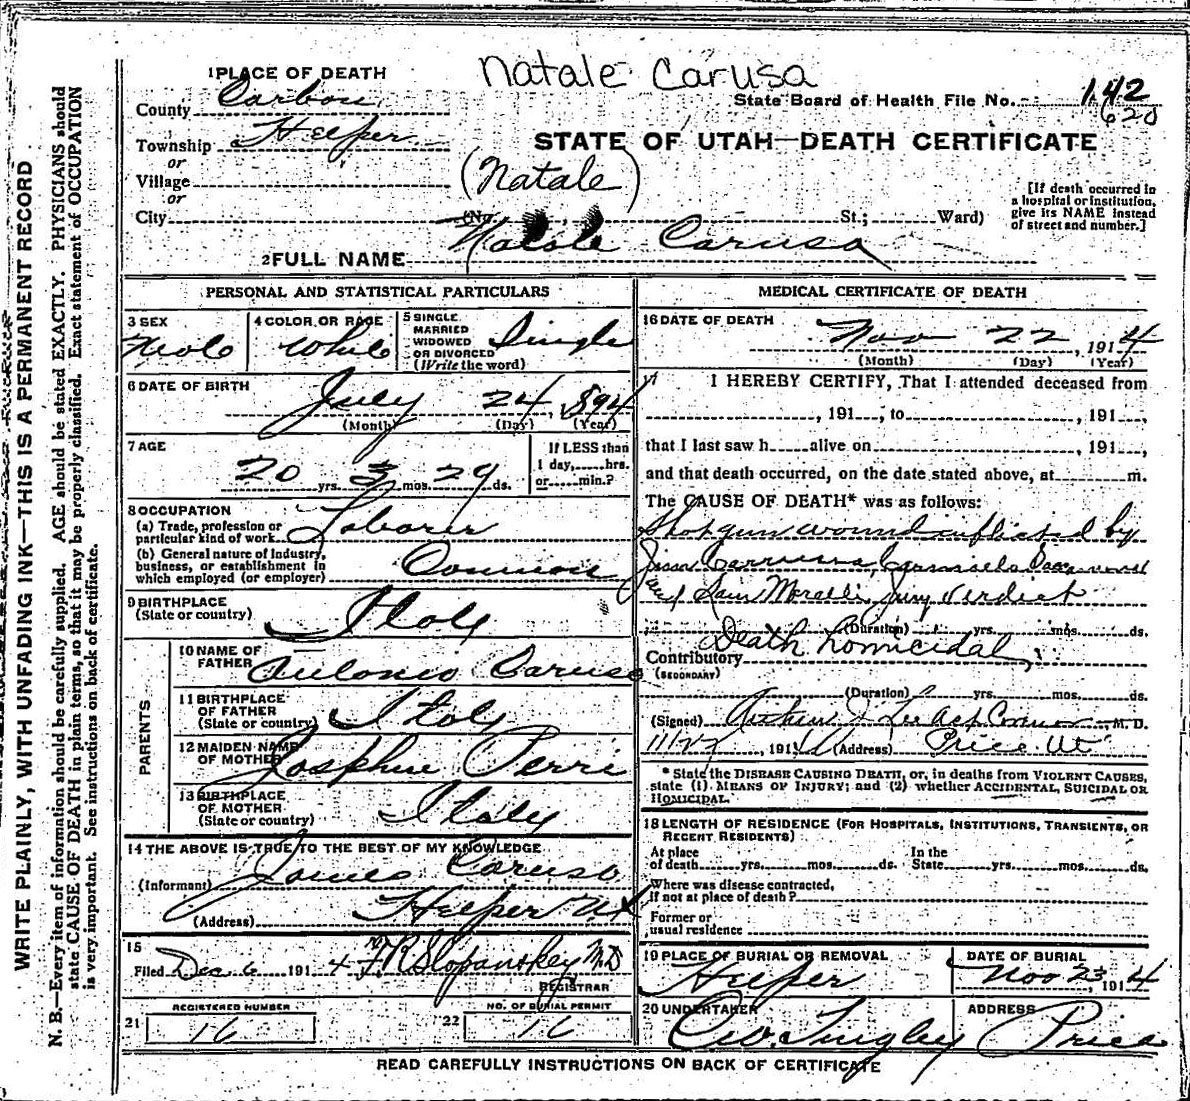 Natale Carusa
1 PLACE OF DEATH
County Carbon
State Board of Health File No. 142
620
Township Helper
STATE OF UTAH—DEATH CERTIFICATE
or
Village
(Natale)
or
City (No. St.; Ward)
[If death occurred in a hospital or institution, give its NAME instead of street and number.]
2 FULL NAME Natale Carusa
PERSONAL AND STATISTICAL PARTICULARS
3 SEX Male
4 COLOR OR RACE White
5 SINGLE MARRIED WIDOWED OR DIVORCED (Write the word) Single
6 DATE OF BIRTH July 24, 1894
(Month) (Day) (Year)
7 AGE 20 yrs. 3 mos. 29 ds.
If LESS than 1 day, hrs. or min.?
8 OCCUPATION
(a) Trade, profession or particular kind of work Laborer
(b) General nature of Industry, business, or establishment in which employed (or employer) Common
9 BIRTHPLACE (State or country) Italy
PARENTS
10 NAME OF FATHER Antonio Caruso
11 BIRTHPLACE OF FATHER (State or country) Italy
12 MAIDEN NAME OF MOTHER Josphine Perri
13 BIRTHPLACE OF MOTHER (State or country) Italy
14 THE ABOVE IS TRUE TO THE BEST OF MY KNOWLEDGE
(Informant) James Caruso
(Address) Helper Ut
15
Filed Dec 6 1914 F R Slopanskey MD
REGISTRAR
REGISTERED NUMBER
21 16
NO. OF BURIAL PERMIT
22 16
MEDICAL CERTIFICATE OF DEATH
16 DATE OF DEATH
Nov 22, 1914
(Month) (Day) (Year)
I HEREBY CERTIFY, That I attended deceased from
, 191 , to , 191 ,
that I last saw h alive on , 191 ,
and that death occurred, on the date stated above, at m.
The CAUSE OF DEATH* was as follows:
Shotgun wound inflicted by
and Sam Moralli Jury verdict
(Duration) yrs. mos. ds.
Contributory Death homicidal
(SECONDARY)
(Duration) yrs. mos. ds.
(Signed) Arthur J Lee Act Coroner M. D.
11/27, 1914 (Address) Price Ut
* State the DISEASE CAUSING DEATH, or, in deaths from VIOLENT CAUSES,
state (1) MEANS OF INJURY; and (2) whether ACCIDENTAL, SUICIDAL OR
HOMICIDAL.
18 LENGTH OF RESIDENCE (FOR HOSPITALS, INSTITUTIONS, TRANSIENTS, OR
RECENT RESIDENTS)
At place of death yrs. mos. ds. In the State yrs. mos. ds.
Where was disease contracted,
if not at place of death?
Former or
usual residence
19 PLACE OF BURIAL OR REMOVAL
Helper
DATE OF BURIAL
Nov 23, 1914
20 UNDERTAKER
Geo. Tingley
ADDRESS
Price
READ CAREFULLY INSTRUCTIONS ON BACK OF CERTIFICATE
WRITE PLAINLY, WITH UNFADING INK—THIS IS A PERMANENT RECORD
N. B.—Every item of information should be carefully supplied. AGE should be stated EXACTLY. PHYSICIANS should
state CAUSE OF DEATH in plain terms, so that it may be properly classified. Exact statement of OCCUPATION
is very important. See instructions on back of certificate.